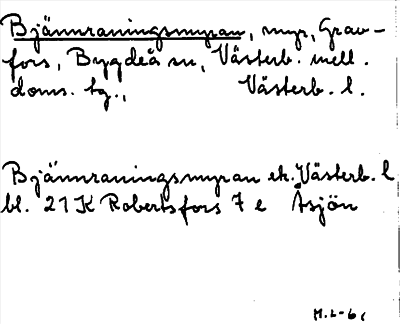 Bjännraningsmyran, myr, Grav-
fors, Bygdeå sn, Västerb. mell.
doms. tg., Västerb. l.
Bjännraningsmyran ek. Västerb. l
bl. 21 K Robertsfors 7 e Åsjön